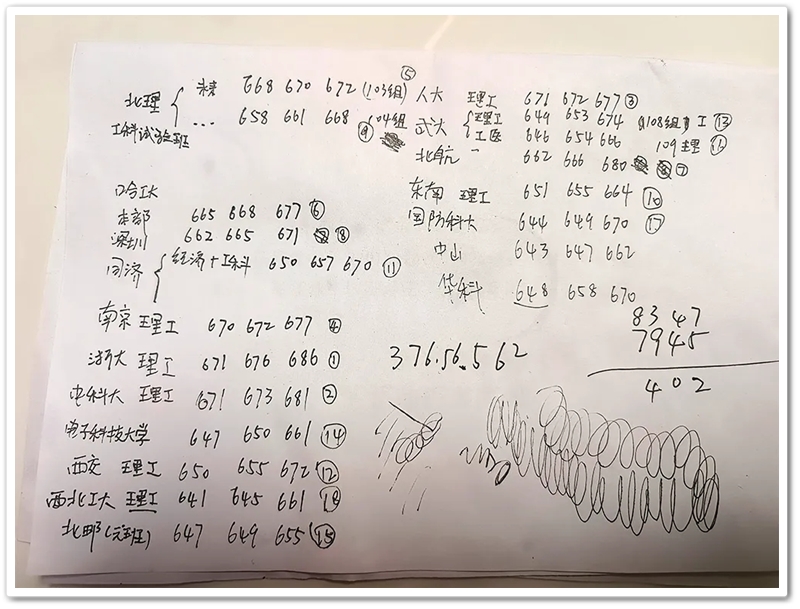 北理 精 668 670 672 (103组) ⑤
工科试验班 … 658 661 668 104组 ⑨
哈工大
本部 665 668 677 ⑥
深圳 662 665 671 ⑧
同济 经济+工科 650 657 670 ⑪
南京 理工 670 672 677 ④
浙大 理工 671 676 686 ①
电科大 理工 671 673 681 ②
电子科技大学 647 650 661 ⑭
西交 理工 650 655 672 ⑫
西北工大 理工 641 645 661 ⑱
北邮(元班) 647 649 655 ⑮
人大 理工 671 672 677 ③
武大 理工 649 653 674 (108组) 工 ⑬
工医 646 654 666 109理 ⑯
北航 〃 662 666 680 ⑦
东南 理工 651 655 664 ⑩
国防科大 644 649 670 ⑰
中山 643 647 662
华科 648 658 670
8347
7945
402
376.56.562